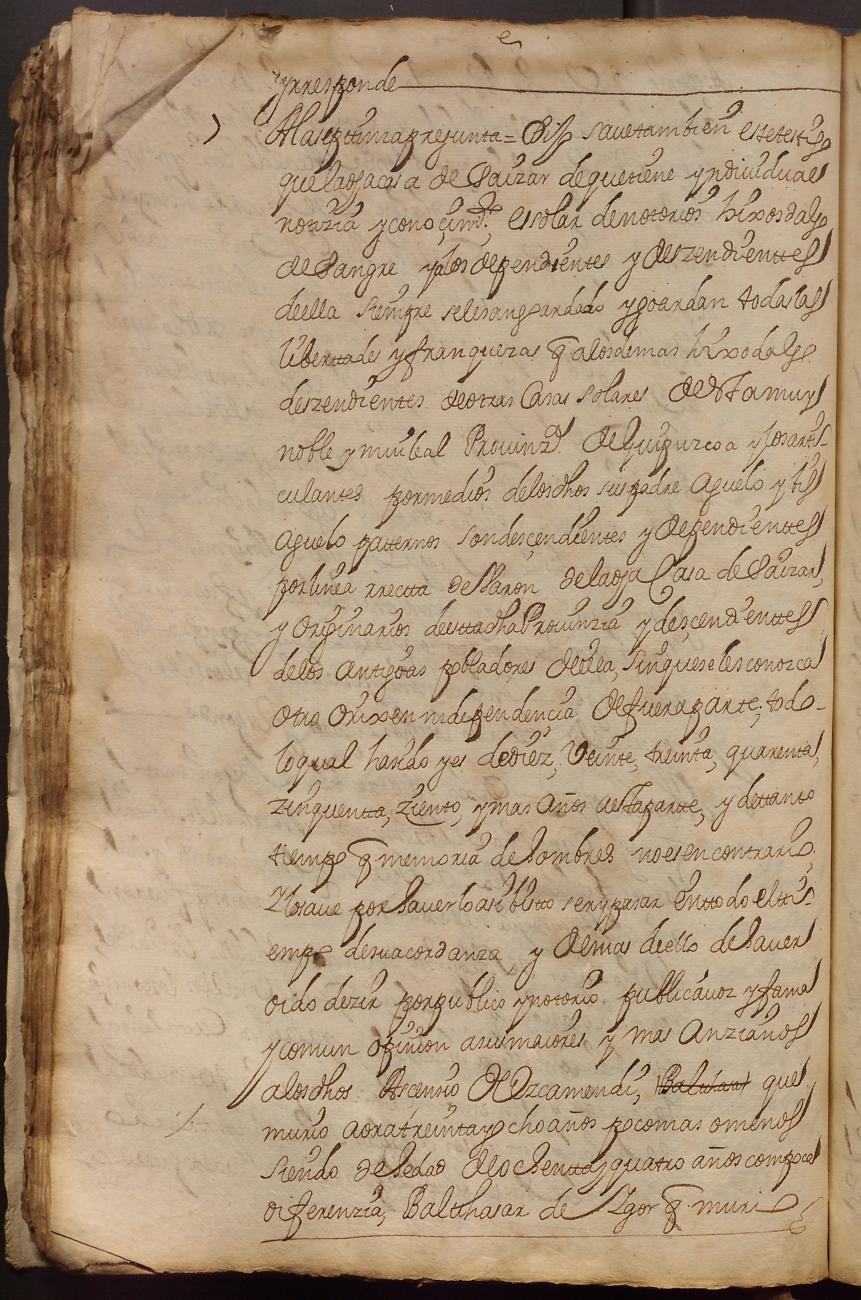 y rresponde
A la septtima pregunta = Dijo saue tambien este testigo
que la dha casa de Saizar de que tiene yndiuidual
notizia y conoçimto. es solar de notorios hixosdalgo
de sangre y a los dependientes y deszendienttes
de ella siempre se les an goardado y goardan todas las
liberttades y franquezas q a los demas hixodalgo
deszendientes de otras Casas solares de esta muy
noble y mui leal Prouinza. de Guipuzcoa y los arti-
culantes por medios de los dhos su padre Aguelo y bis
aguelo patternos son desçendientes y dependienttes
por linea rrectta de Varon de la dha Casa de Saizar,
y originarios de estta dha Prouinzia y desçendienttes
de los antigoas pobladores de ella, sin que se les conozca
otro orixen ni dependencia de fuera parte; todo
lo qual ha sido y es de diez, Veinte, treinta, quarenta,
zinquentta, ziento, y mas años a esta partte, y de ttanto
tiempo q memoria de hombres no es en contrario.
Y lo saue por hauerlo asi bistto ser y pasar en ttodo el tti-
empo de su acordanza, y demas de ello de hauer
oido dezir por publico y notorio publica uoz y fama
y comun opinion a sus maiores y mas Anzianos
a los dhos Ascensio de Ozcamendi, Balthasar que
murio aora treinta y ocho años poco mas o menos
siendo de hedad de ochentta y quatro años com poca
diferenzia, Balthasar de Ygor q murio